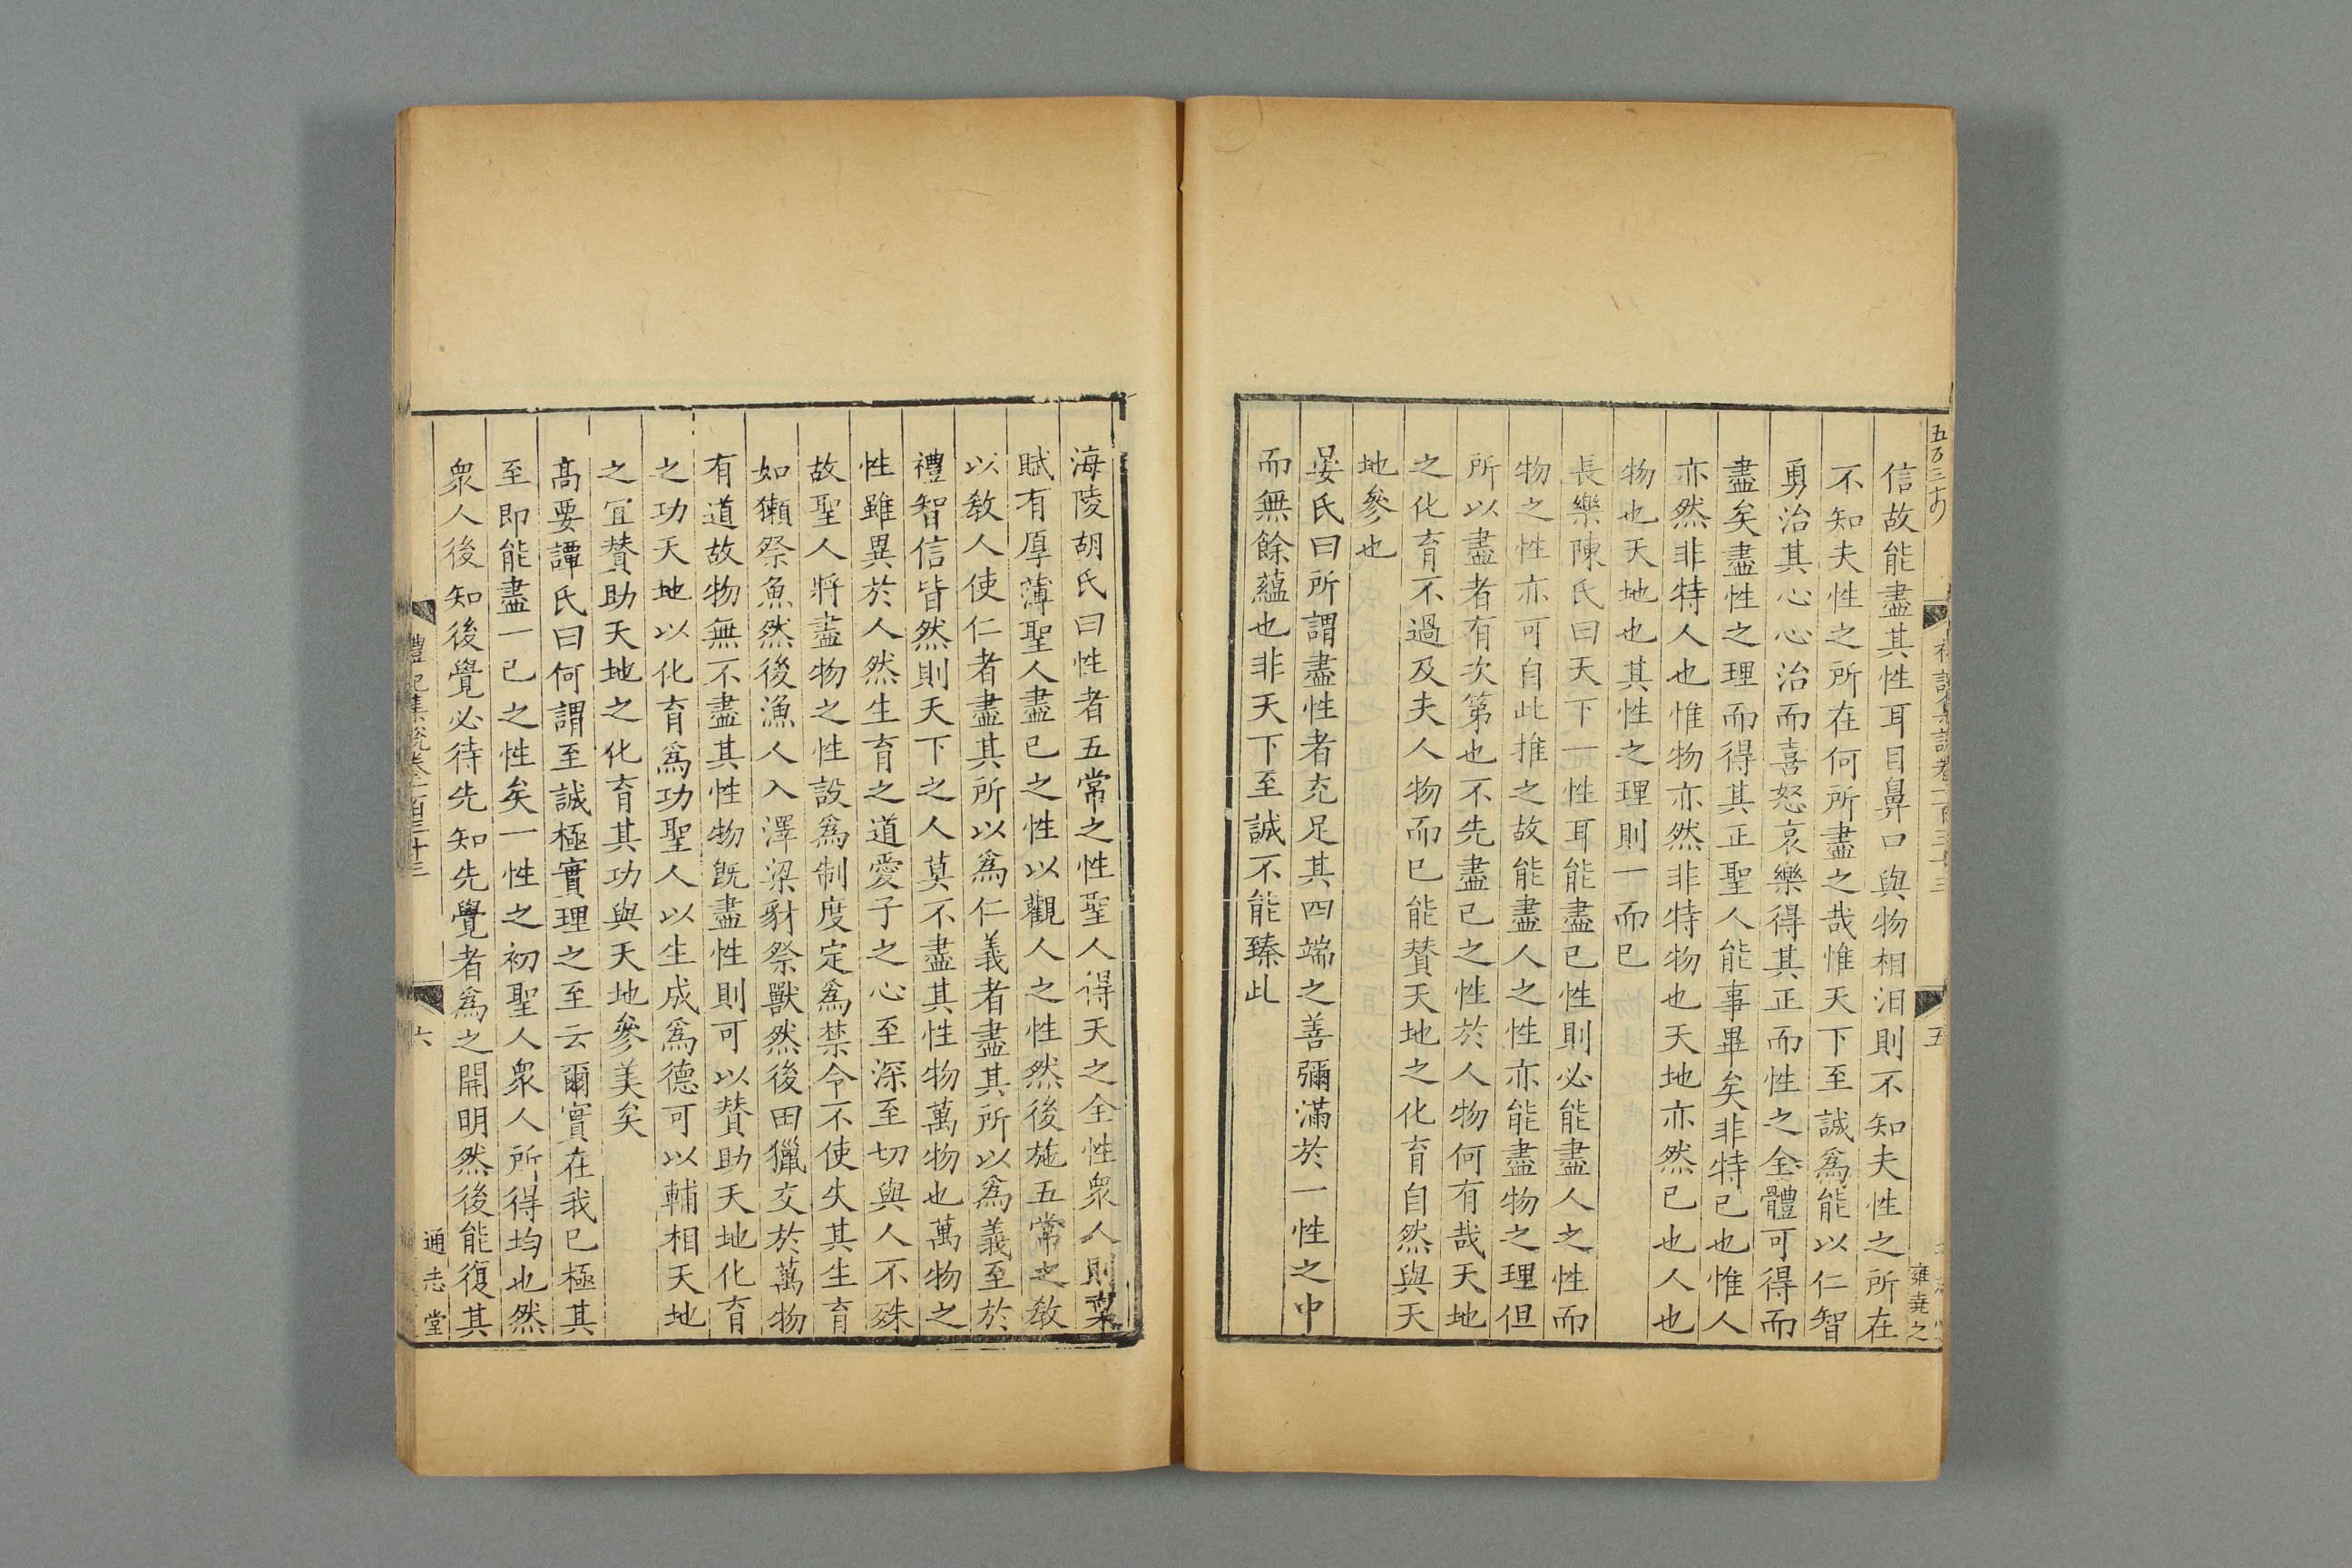 信故能盡其性耳目鼻口與物相汨則不知夫性之所在
不知夫性之所在何所盡之哉惟天下至誠爲能以仁智
勇治其心心治而喜怒哀樂得其正而性之全體可得而
盡矣盡性之理而得其正聖人能事畢矣非特已也惟人
亦然非特人也惟物亦然非特物也天地亦然已也人也
物也天地也其性之理則一而已
長樂陳氏曰天下一性耳能盡已性則必能盡人之性而
物之性亦可自此推之故能盡人之性亦能盡物之理但
所以盡者有次第也不先盡已之性於人物何有哉天地
之化育不過及夫人物而已能賛天地之化育自然與天
地參也
晏氏曰所謂盡性者充足其四端之善彌滿於一性之中
而無餘蘊也非天下至誠不能臻此
五
雍堯之
海陵胡氏曰性者五常之性聖人得天之全性衆人則稟
賦有厚薄聖人盡已之性以觀人之性然後施五常之敎
以敎人使仁者盡其所以爲仁義者盡其所以爲義至於
禮智信皆然則天下之人莫不盡其性物萬物也萬物之
性雖異於人然生育之道愛子之心至深至切與人不殊
故聖人將盡物之性設爲制度定爲禁令不使失其生育
如獺祭魚然後漁人入澤梁豺祭獸然後田獵交於萬物
有道故物無不盡其性物旣盡性則可以賛助天地化育
之功天地以化育爲功聖人以生成爲德可以輔相天地
之宜賛助天地之化育其功與天地參美矣
髙要譚氏曰何謂至誠極實理之至云爾實在我已極其
至即能盡一已之性矣一性之初聖人衆人所得均也然
衆人後知後覺必待先知先覺者爲之開明然後能復其
禮記集說卷一百三十三
六
通志堂